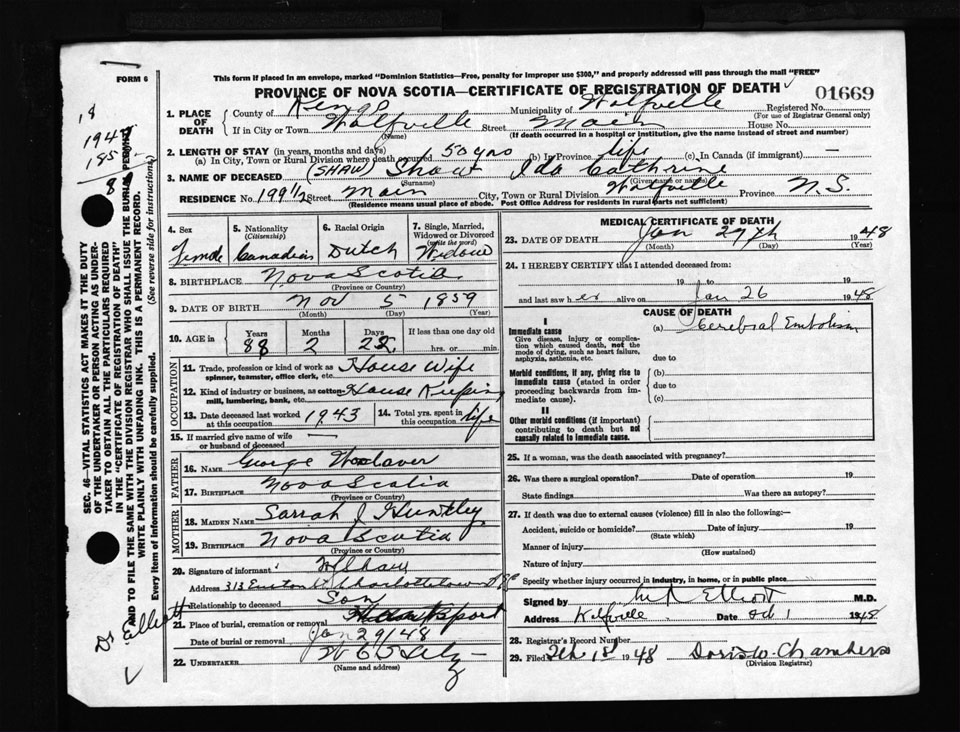 FORM 6
This form if placed in an envelope, marked "Dominion Statistics—Free, penalty for improper use $300," and properly addressed will pass through the mail "FREE"
PROVINCE OF NOVA SCOTIA—CERTIFICATE OF REGISTRATION OF DEATH
01669
18
1947
185
8
1. PLACE OF DEATH
County of Kings Municipality of Wolfville Registered No.
(For use of Registrar General only)
If in City or Town Wolfville Street Main House No.
(Name) (If death occurred in a hospital or institution, give the name instead of street and number)
2. LENGTH OF STAY (in years, months and days)
(a) In City, Town or Rural Division where death occurred 50 yrs (b) In Province life (c) In Canada (if immigrant) —
3. NAME OF DECEASED (SHAW) Shaw Ida Catherine
(Surname) (Given name or names)
RESIDENCE No. 199 1/2 Street Main City, Town or Rural Division Wolfville Province N.S.
(Residence means usual place of abode. Post Office Address for residents in rural parts not sufficient)
4. Sex
Female
5. Nationality
(Citizenship)
Canadian
6. Racial Origin
Dutch
7. Single, Married, Widowed or Divorced
(write the word)
Widow
8. BIRTHPLACE Nova Scotia
(Province or Country)
9. DATE OF BIRTH Nov 5 1859
(Month) (Day) (Year)
10. AGE in
Years Months Days If less than one day old
88 2 22 hrs. or min.
OCCUPATION
11. Trade, profession or kind of work as spinner, teamster, office clerk, etc. House Wife
12. Kind of industry or business, as cotton mill, lumbering, bank, etc. House Keeping
13. Date deceased last worked at this occupation 1943
14. Total yrs. spent in this occupation life
15. If married give name of wife or husband of deceased —
FATHER
16. NAME George Woolaver
17. BIRTHPLACE Nova Scotia
(Province or Country)
MOTHER
18. MAIDEN NAME Sarrah J Huntley
19. BIRTHPLACE Nova Scotia
(Province or Country)
20. Signature of informant
Address 313 Euston St Charlottetown
Relationship to deceased Son
21. Place of burial, cremation or removal
Date of burial or removal Jan 29/48
22. UNDERTAKER
(Name and address)
MEDICAL CERTIFICATE OF DEATH
23. DATE OF DEATH Jan 27th 1948
(Month) (Day) (Year)
24. I HEREBY CERTIFY that I attended deceased from:
19 to 19
and last saw her alive on Jan 26 1948
CAUSE OF DEATH
I
Immediate cause
Give disease, injury or complication which caused death, not the mode of dying, such as heart failure, asphyxia, asthenia, etc.
(a) Cerebral Embolism
due to
Morbid conditions, if any, giving rise to immediate cause (stated in order proceeding backwards from immediate cause).
(b)
due to
(c)
II
Other morbid conditions (if important) contributing to death but not causally related to immediate cause.
25. If a woman, was the death associated with pregnancy?
26. Was there a surgical operation? Date of operation 19
State findings Was there an autopsy?
27. If death was due to external causes (violence) fill in also the following:—
Accident, suicide or homicide? Date of injury 19
(State which)
Manner of injury
(How sustained)
Nature of injury
Specify whether injury occurred in industry, in home, or in public place
Signed by Elliott M.D.
Address Wolfville Date 1 1948
28. Registrar's Record Number
29. Filed Feb 18 1948 Doris W. Chambers
(Division Registrar)
SEC. 46—VITAL STATISTICS ACT MAKES IT THE DUTY
OF THE UNDERTAKER OR PERSON ACTING AS UNDER-
TAKER TO OBTAIN ALL THE PARTICULARS REQUIRED
IN THE "CERTIFICATE OF REGISTRATION OF DEATH"
AND TO FILE THE SAME WITH THE DIVISION REGISTRAR WHO SHALL ISSUE THE BURIAL PERMIT.
WRITE PLAINLY WITH UNFADING INK. THIS IS A PERMANENT RECORD.
Every item of information should be carefully supplied. (See reverse side for instructions.)
Dr Elliott